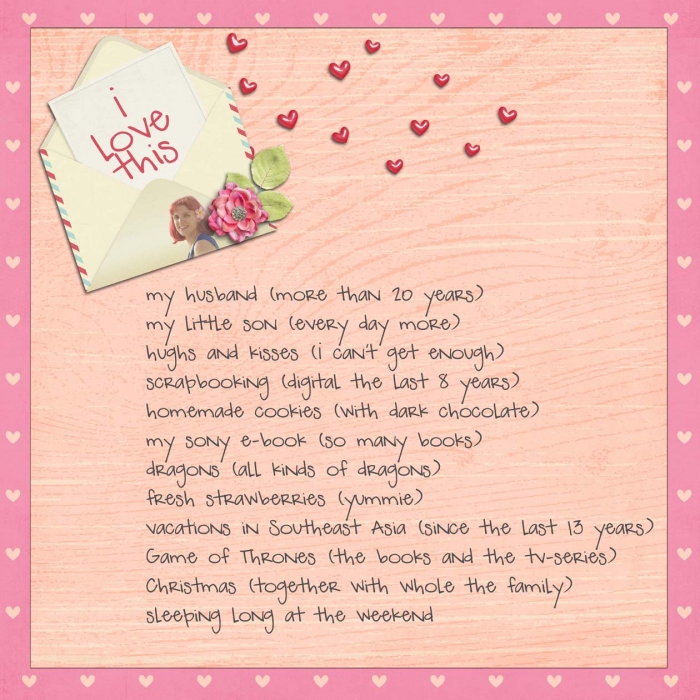 i
Love
this
my husband (more than 20 years)
my little son (every day more)
hughs and kisses (i can't get enough)
scrapbooking (digital the last 8 years)
homemade cookies (with dark chocolate)
my sony e-book (so many books)
dragons (all kinds of dragons)
fresh strawberries (yummie)
vacations in Southeast Asia (since the last 13 years)
Game of Thrones (the books and the tv-series)
Christmas (together with whole the family)
sleeping long at the weekend